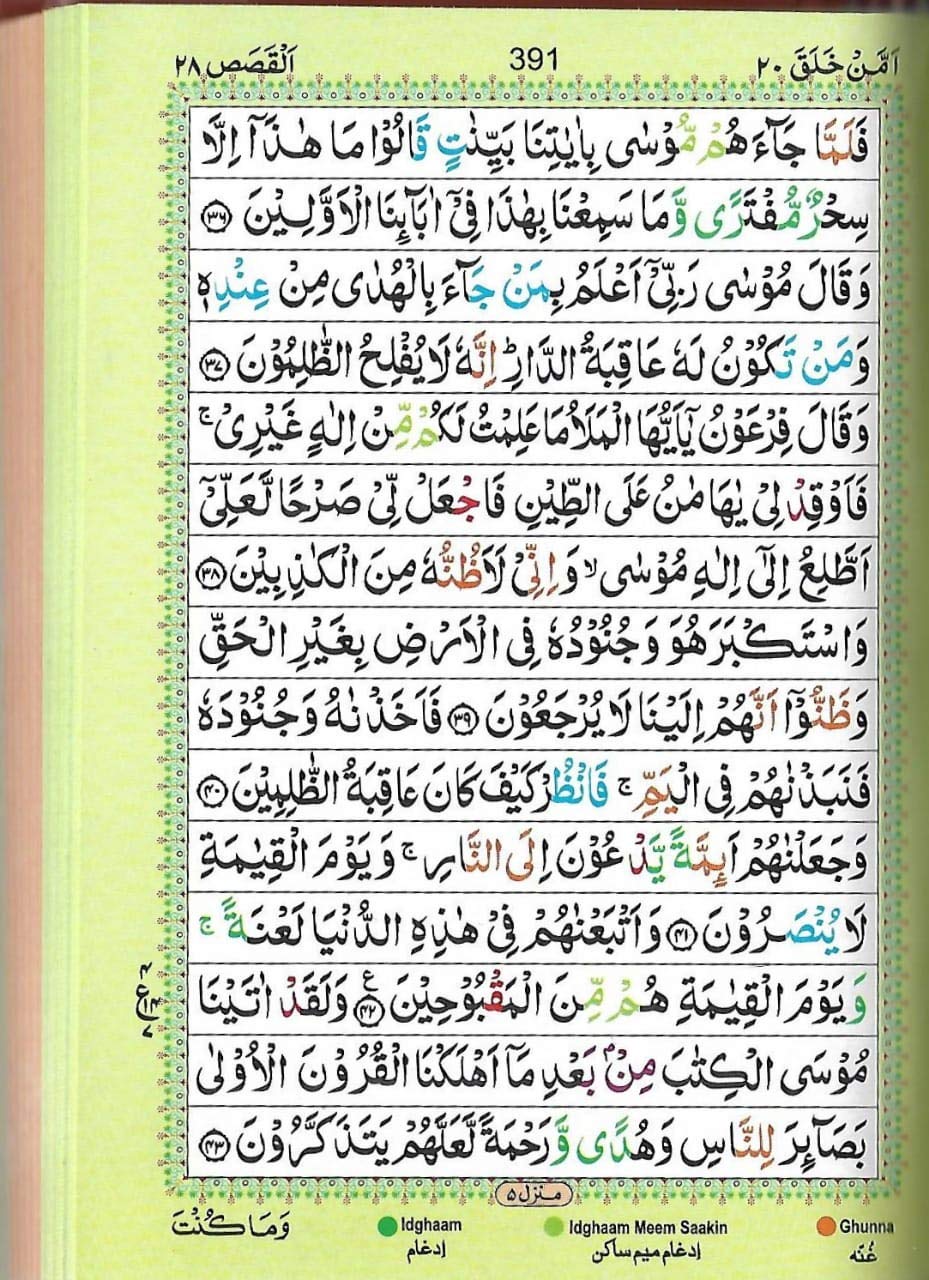 اَمَّنْ خَلَقَ ٢٠ 391 اَلْقَصَص ٢٨
فَلَمَّا جَآءَهُمْ مُّوْسٰى بِاٰيٰتِنَا بَيِّنٰتٍ قَالُوْا مَا هٰذَاۤ اِلَّا
سِحْرٌ مُّفْتَرًى وَّمَا سَمِعْنَا بِهٰذَا فِيْۤ اٰبَآئِنَا الْاَوَّلِيْنَ ﴿٣٦﴾
وَقَالَ مُوْسٰى رَبِّيْۤ اَعْلَمُ بِمَنْ جَآءَ بِالْهُدٰى مِنْ عِنْدِهٖ
وَمَنْ تَكُوْنُ لَهٗ عَاقِبَةُ الدَّارِ ؕ اِنَّهٗ لَا يُفْلِحُ الظّٰلِمُوْنَ ﴿٣٧﴾
وَقَالَ فِرْعَوْنُ يٰۤاَيُّهَا الْمَلَاُ مَا عَلِمْتُ لَكُمْ مِّنْ اِلٰهٍ غَيْرِيْ ۚ
فَاَوْقِدْ لِيْ يٰهَامٰنُ عَلَى الطِّيْنِ فَاجْعَلْ لِّيْ صَرْحًا لَّعَلِّيْۤ
اَطَّلِعُ اِلٰۤى اِلٰهِ مُوْسٰى ۙ وَاِنِّيْ لَاَظُنُّهٗ مِنَ الْكٰذِبِيْنَ ﴿٣٨﴾
وَاسْتَكْبَرَ هُوَ وَجُنُوْدُهٗ فِى الْاَرْضِ بِغَيْرِ الْحَقِّ
وَظَنُّوْۤا اَنَّهُمْ اِلَيْنَا لَا يُرْجَعُوْنَ ﴿٣٩﴾ فَاَخَذْنٰهُ وَجُنُوْدَهٗ
فَنَبَذْنٰهُمْ فِى الْيَمِّ ۚ فَانْظُرْ كَيْفَ كَانَ عَاقِبَةُ الظّٰلِمِيْنَ ﴿٤٠﴾
وَجَعَلْنٰهُمْ اَئِمَّةً يَّدْعُوْنَ اِلَى النَّارِ ۚ وَيَوْمَ الْقِيٰمَةِ
لَا يُنْصَرُوْنَ ﴿٤١﴾ وَاَتْبَعْنٰهُمْ فِيْ هٰذِهِ الدُّنْيَا لَعْنَةً ۚ
وَيَوْمَ الْقِيٰمَةِ هُمْ مِّنَ الْمَقْبُوْحِيْنَ ﴿٤٢﴾ ع وَلَقَدْ اٰتَيْنَا
مُوْسَى الْكِتٰبَ مِنْۢ بَعْدِ مَاۤ اَهْلَكْنَا الْقُرُوْنَ الْاُوْلٰى
بَصَآئِرَ لِلنَّاسِ وَهُدًى وَّرَحْمَةً لَّعَلَّهُمْ يَتَذَكَّرُوْنَ ﴿٤٣﴾
منزل ٥
Ghunna Idghaam Meem Saakin Idghaam وَمَا كُنْتَ
غُنّه ادغام میم ساکن ادغام